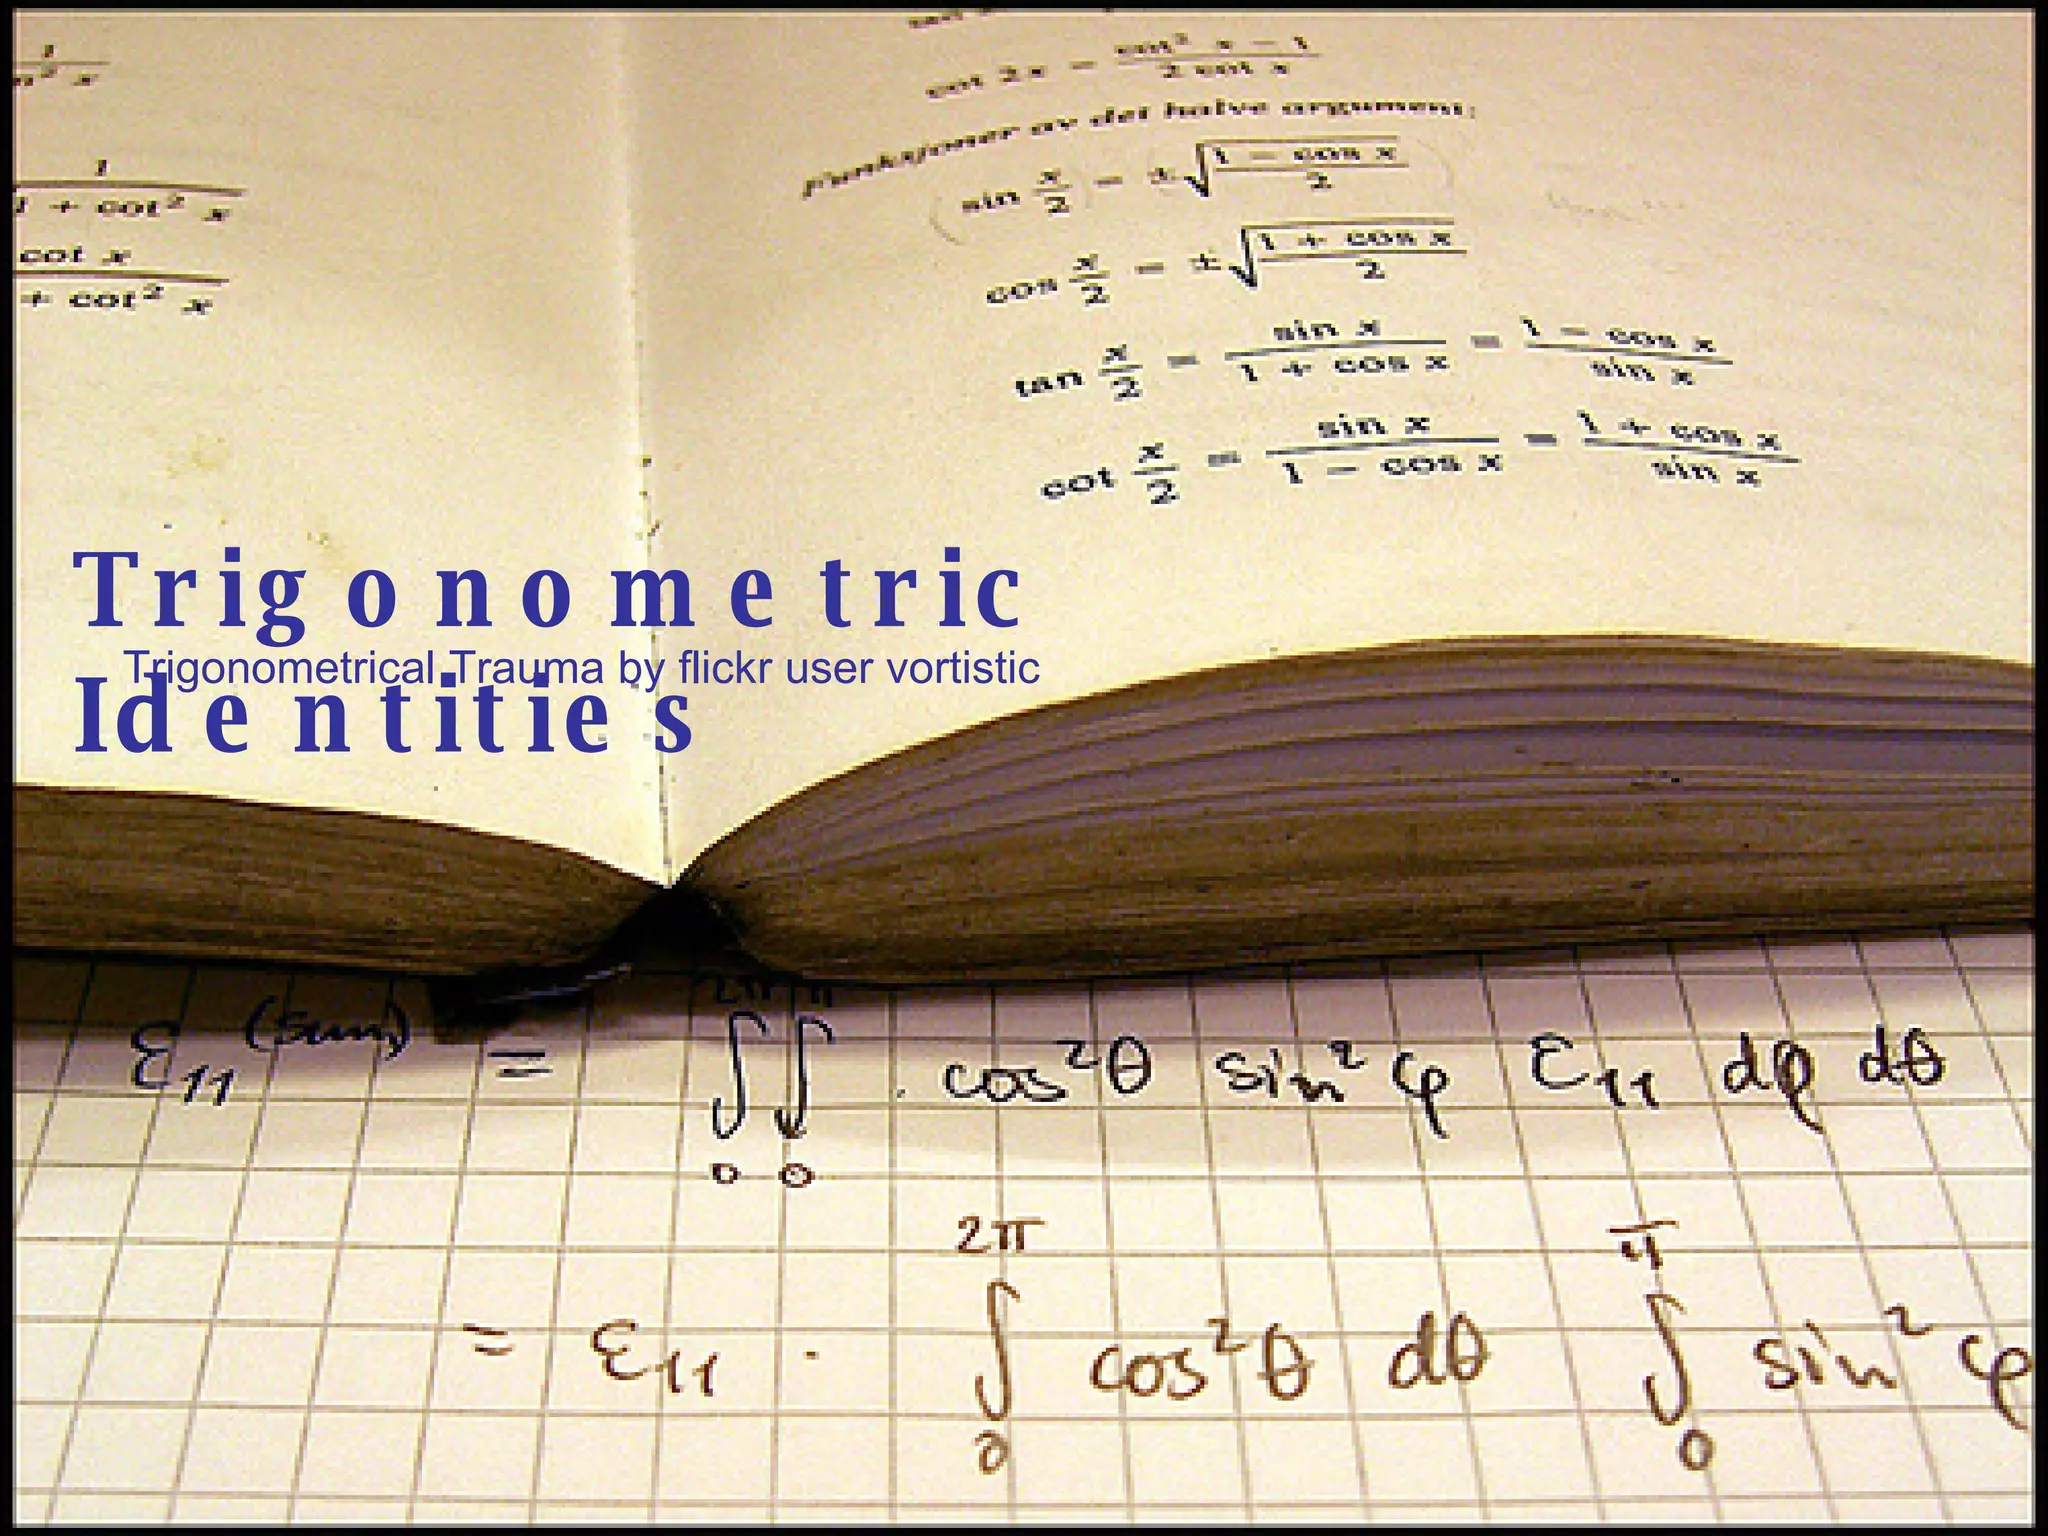 1
x
1
1 + cot² x
cot x
+ cot² x
cot 2x = cot² x − 1 / 2 cot x
Funksjoner av det halve argument:
sin x/2 = ± √(1 − cos x / 2)
cos x/2 = ± √(1 + cos x / 2)
tan x/2 = sin x / 1 + cos x = 1 − cos x / sin x
cot x/2 = sin x / 1 − cos x = 1 + cos x / sin x
Trigonometric
Trigonometrical Trauma by flickr user vortistic
Identities
ε₁₁ (sum) = ∫₀^2π ∫₀^π · cos²θ sin²φ ε₁₁ dφ dθ
= ε₁₁ · ∫₀^2π cos²θ dθ ∫₀^π sin²φ